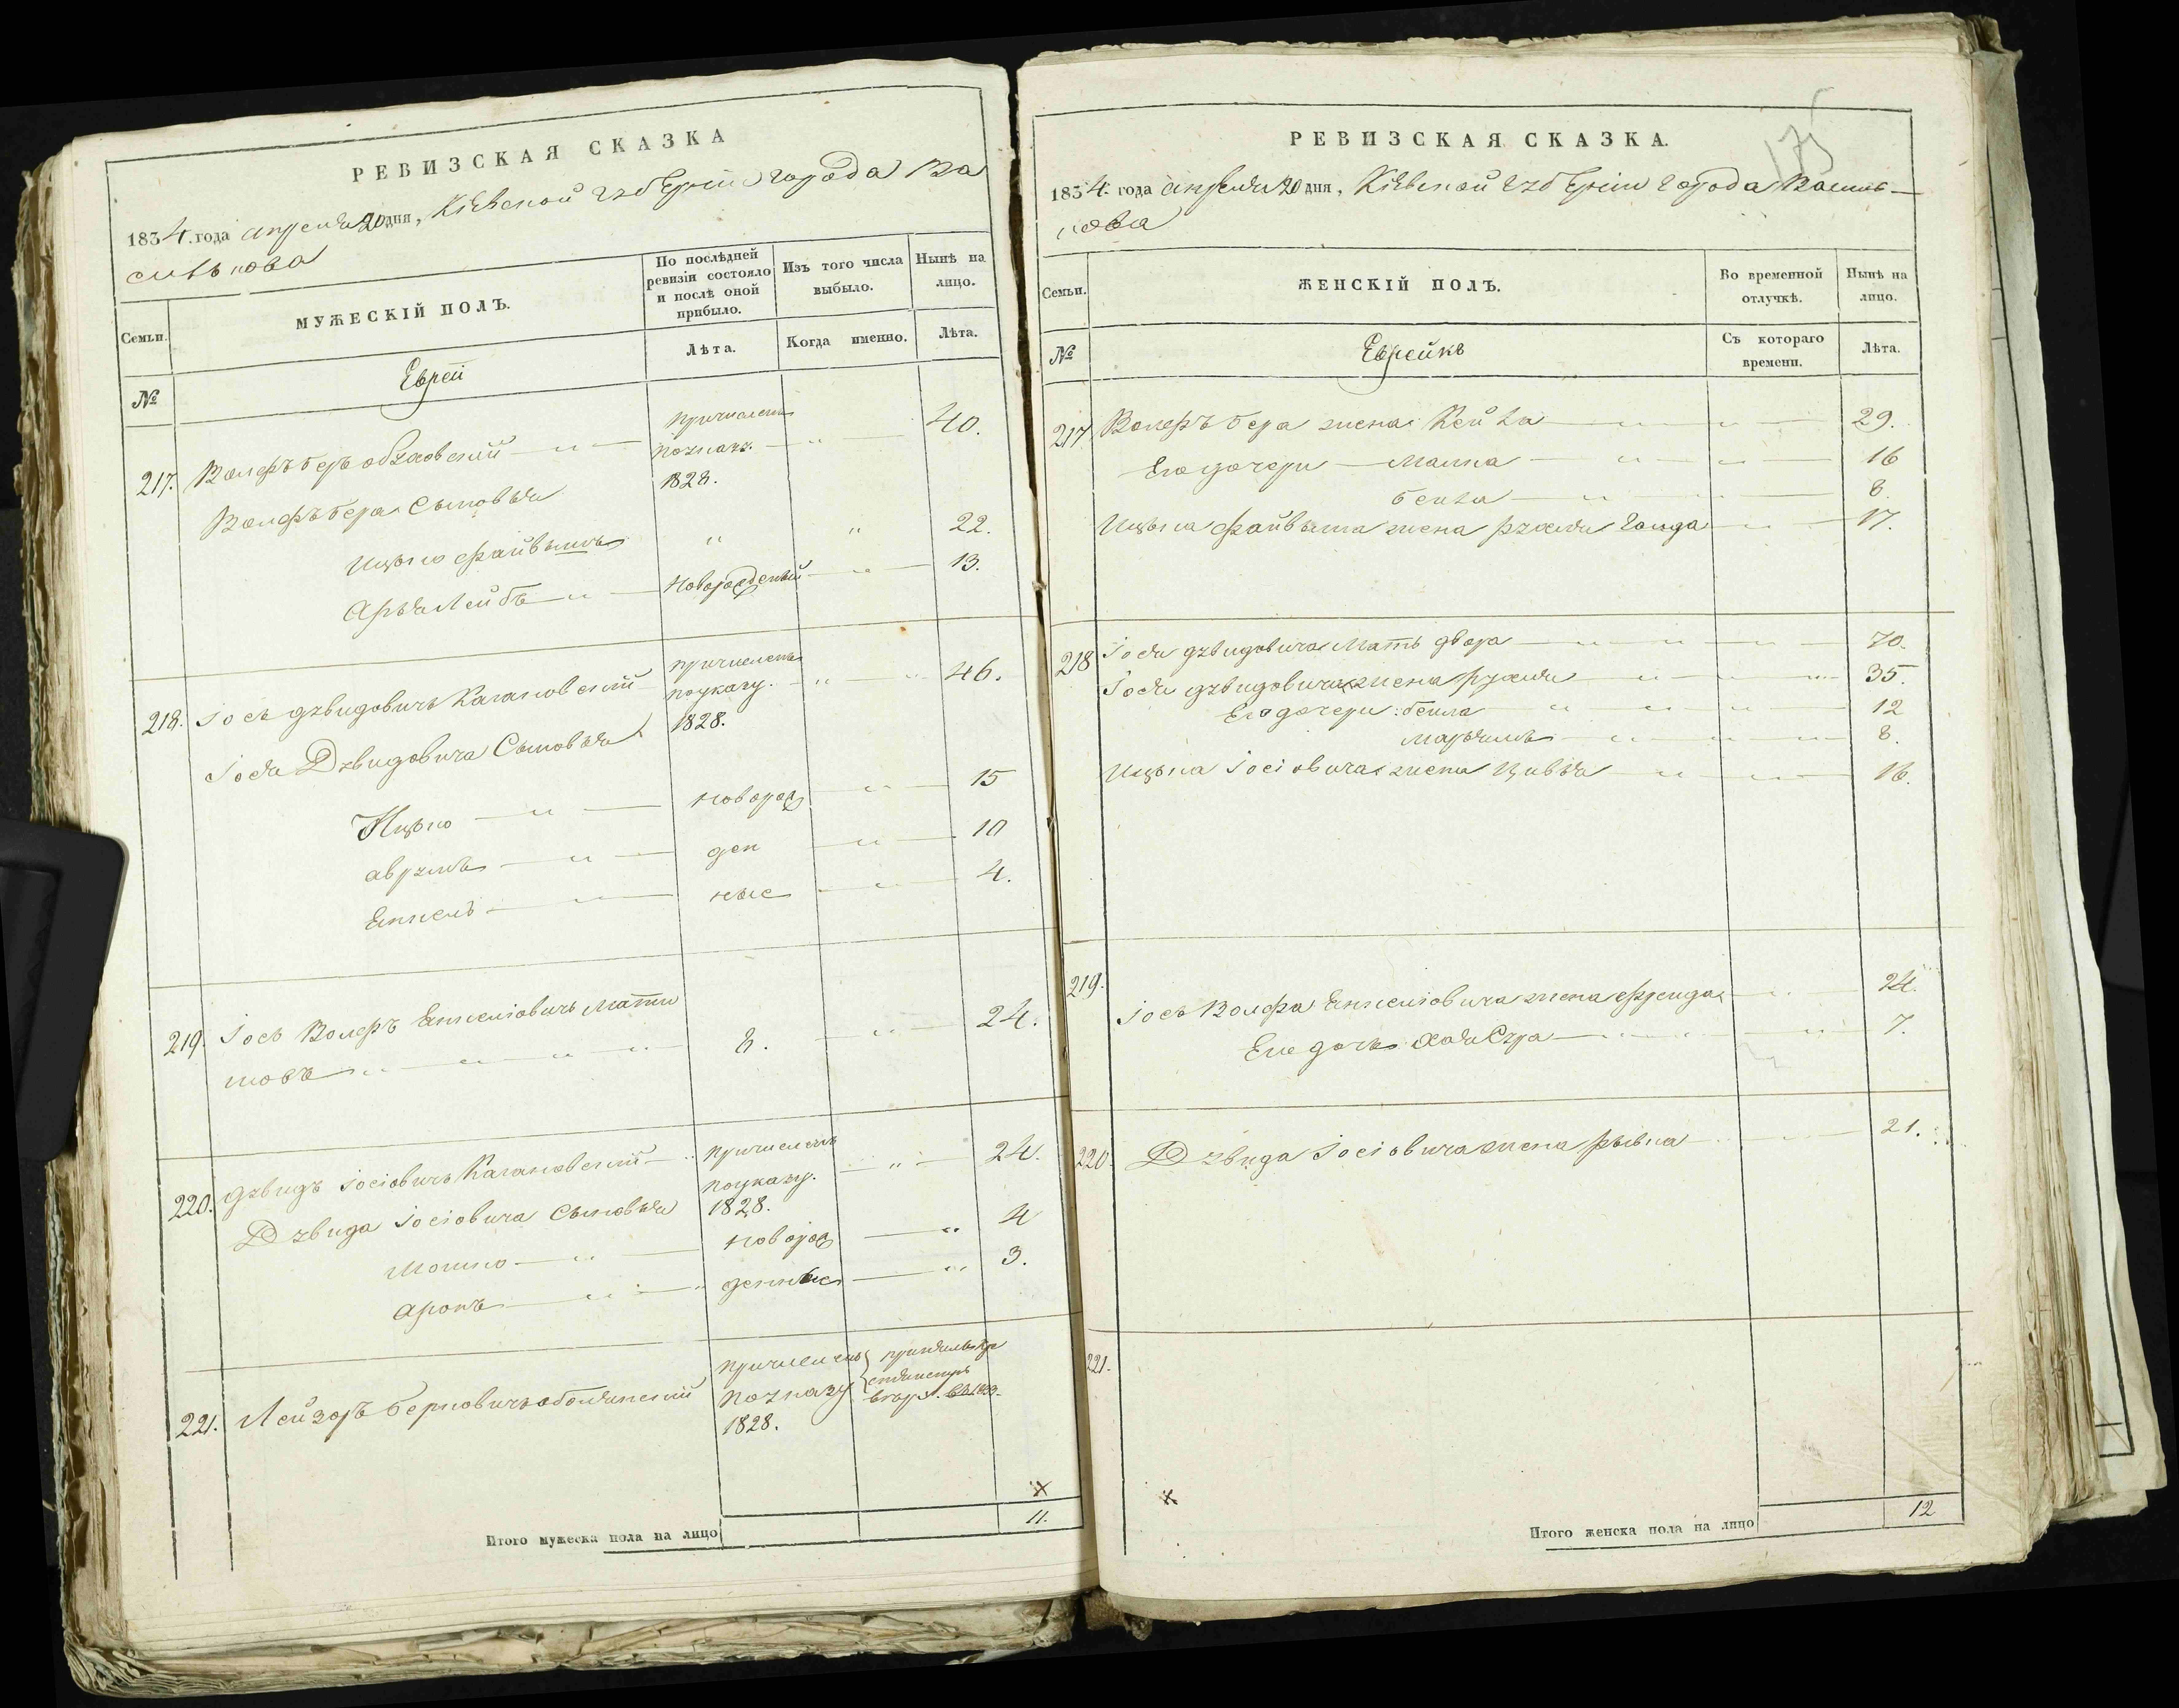 РЕВИЗСКАЯ СКАЗКА
1834. года апреля 20 дня, Кіевской губерніи города Ва
силькова
Семьи.
МУЖЕСКІЙ ПОЛЪ.
По послѣдней ревизіи состояло и послѣ оной прибыло.
Изъ того числа выбыло.
Нынѣ на лицо.
№
Еврей
Лѣта.
Когда именно.
Лѣта.
217. Волфъ беръ причисленъ 40.
поуказу
Волфъ бера сыновья 1828.
Ицько Файвишъ " " 22.
Арья Лейбъ Новорожденный 13.
218. Іось Дувидовичъ Кагановскій причисленъ поуказу. 46.
Іося Дувидовича Сыновья 1828.
Ицько новорож 15
аврумъ ден 10
Янкель ные 4.
219. Іось Волфъ Янкеліовичъ 8. 24.
220. Дувидъ Іосіовичъ Кагановскій причисленъ поуказу. 24.
Дувида Іосіовича сыновья 1828.
Мошко новорож 4
аронъ денные 3.
221. Лейзоръ Берковичъ причисленъ
поуказу
1828.
Итого мужеска пола на лицо 11.
РЕВИЗСКАЯ СКАЗКА.
175
1834 года апреля 20 дня, Кіевской губерніи города Василь-
кова
Семьи.
ЖЕНСКІЙ ПОЛЪ.
Во временной отлучкѣ.
Нынѣ на лицо.
№
Еврейкѣ
Съ котораго времени.
Лѣта.
217 Волфъ бера жена Кейла 29.
Его дочери Малка 16
бейла 8.
Ицька Файвиша жена рухля Голда 17.
218 Іося Дувидовича Мать двора 70.
Іося Дувидовича жена рухля 35.
Его дочери: бейла 12
Марьямъ 8.
Ицька Іосіовича жена Цивья 16.
219. Іось Волфа Янкеліовича жена Фрейда 24.
Его дочь хая Сура 7.
220. Дувида Іосіовича жена рывка 21.
221.
Итого женска пола на лицо 12